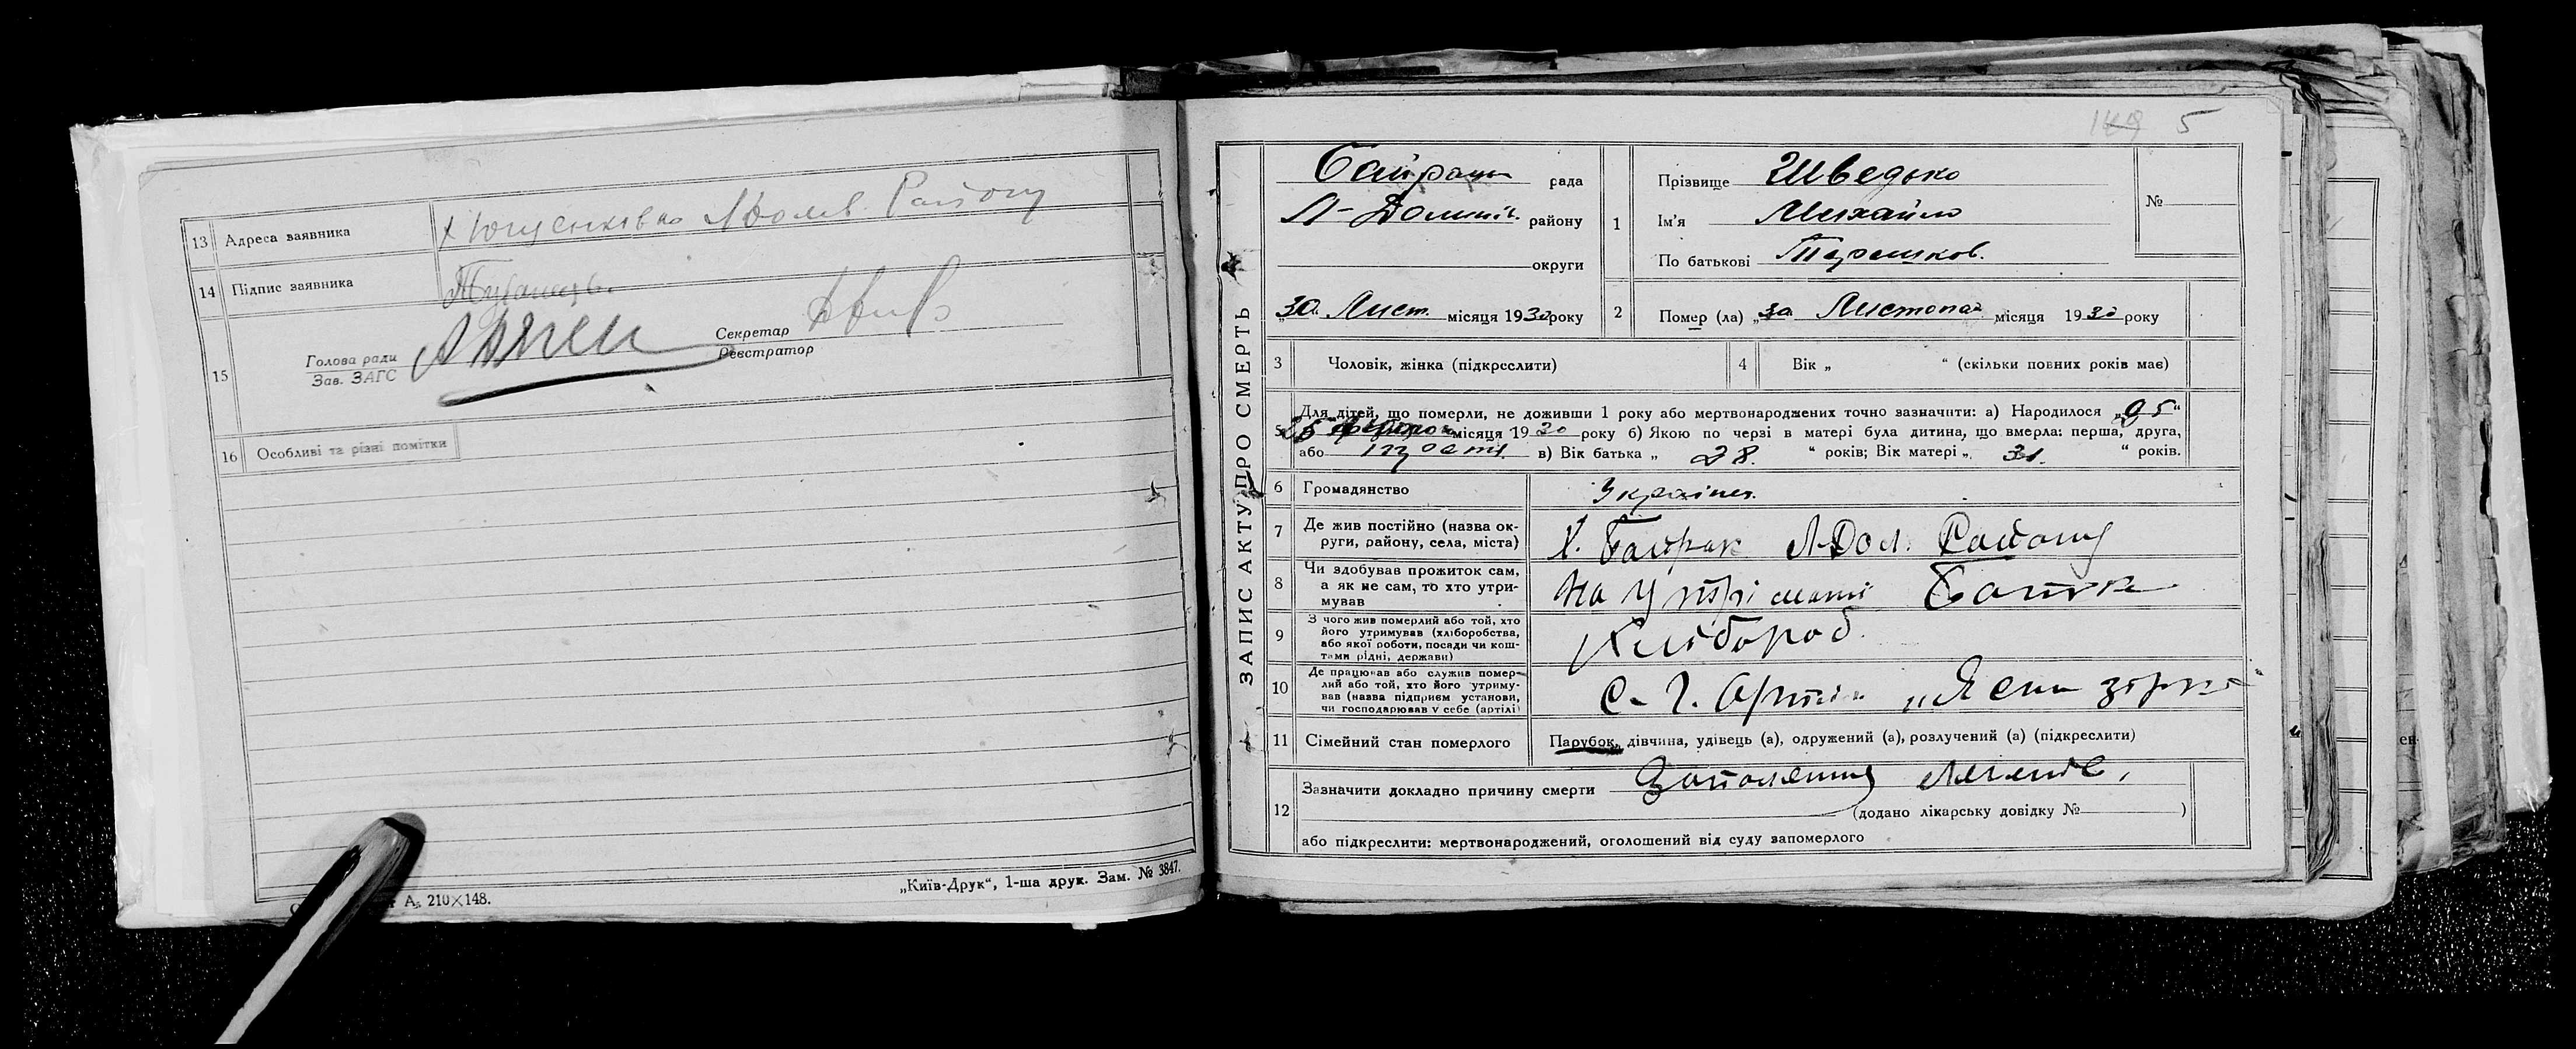 13 Адреса заявника х Ющенківка Району
14 Підпис заявника
15 Голова ради
Зав. ЗАГС
Секретар
Реєстратор
16 Особливі та різні помітки
А₅ 210×148.
„Київ-Друк“, 1-ша друк. Зам. № 3847.
149 5
ЗАПИС АКТУ ПРО СМЕРТЬ
рада
Л- району
округи
„30“ Лист. місяця 1930 року
1 Прізвище Шведько
Ім'я Михайло
По батькові Терешков.
№
2 Помер (ла) „30 Листопад місяця 1930 року
3 Чоловік, жінка (підкреслити)
4 Вік „ “ (скільки повних років має)
5 Для дітей, що померли, не доживши 1 року або мертвонароджених точно зазначити: а) Народилося „25“
25 місяця 1930 року б) Якою по черзі в матері була дитина, що вмерла: перша, друга,
або в) Вік батька „ 28. “ років; Вік матері „ 31. “ років.
6 Громадянство Україн.
7 Де жив постійно (назва ок-
руги, району, села, міста) Х. Байрак Л-Дол. Району
8 Чи здобував прожиток сам,
а як не сам, то хто утри-
мував На утріманні Батька
9 З чого жив померлий або той, хто
його утримував (хліборобства,
або якої роботи, посади чи кош-
тами рідні, держави) Хлібороб.
10 Де працював або служив помер-
лий або той, хто його утриму-
вав (назва підприєм установи,
чи господарював у себе (артілі) С-Г. Артіль „Ясна зірка
11 Сімейний стан померлого Парубок, дівчина, удівець (а), одружений (а), розлучений (а) (підкреслити)
12 Зазначити докладно причину смерти Запалення Легенів,
(додано лікарську довідку № )
або підкреслити: мертвонароджений, оголошений від суду запомерлого